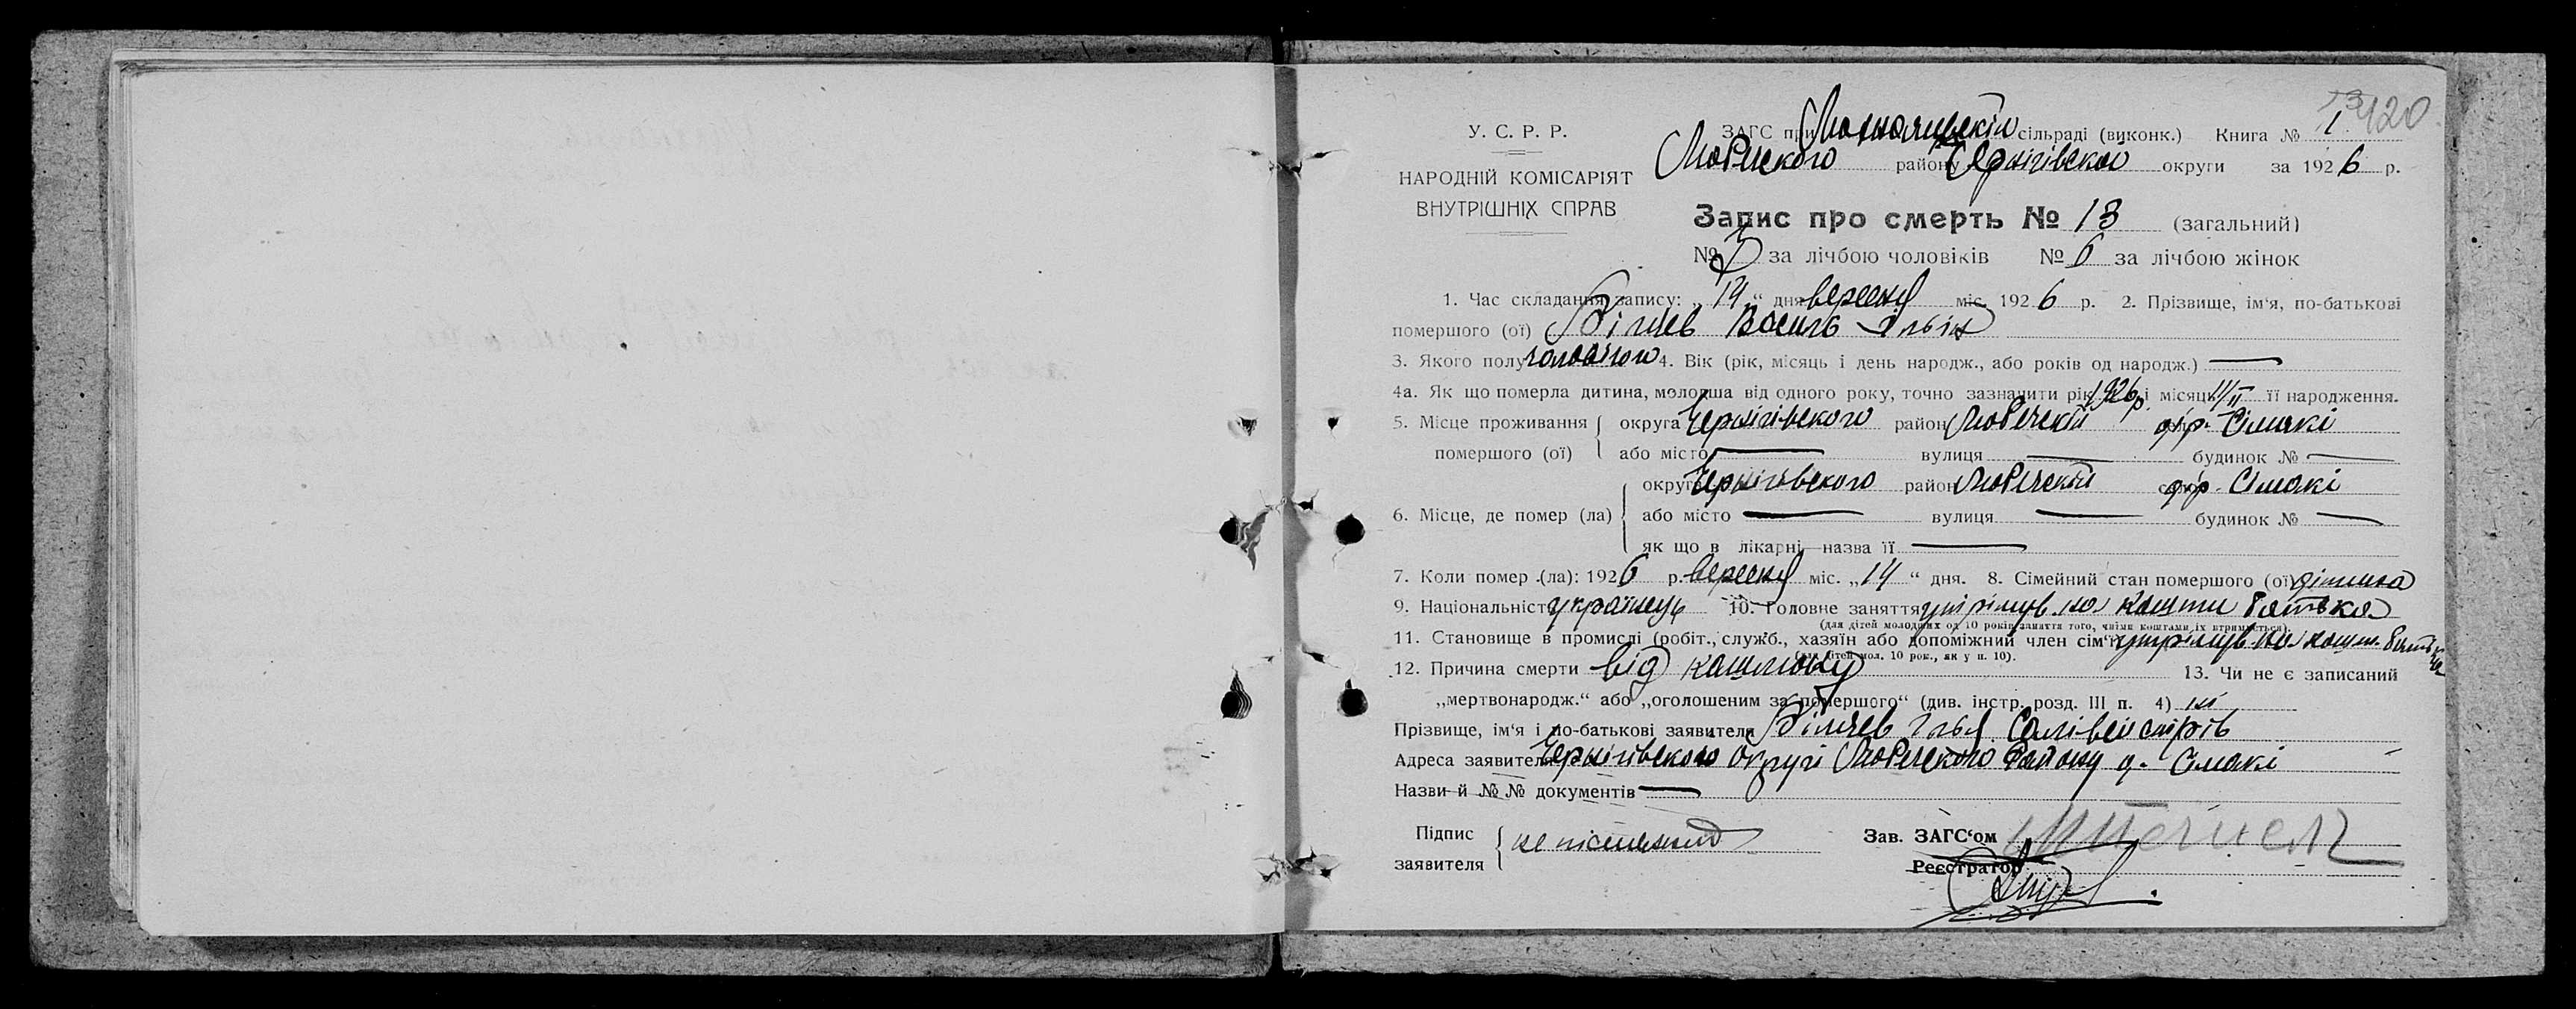 13 120
У. С. Р. Р. ЗАГС при сільраді (виконк.) Книга № 1
Любецкого району Чернігівской округи за 1926 р.
НАРОДНІЙ КОМІСАРІЯТ
ВНУТРІШНІХ СПРАВ
Запис про смерть № 13 (загальний)
№ 7 за лічбою чоловіків № 6 за лічбою жінок
1. Час складання запису: „19“ дня вересня міс. 1926 р. 2. Прізвище, ім'я, по-батькові
помершого (ої) Білчев Василь Ільїч
3. Якого полу чоловічого 4. Вік (рік, місяць і день народж., або років од народж.) —
4а. Як що померла дитина, молодша від одного року, точно зазначити рік 1926р і місяць її народження.
5. Місце проживання округа Чернігівского район Любечскій д/р. Сімакі
помершого (ої) або місто — вулиця — будинок № —
округа Чернігівского район Любечскій д/р. Сімакі
6. Місце, де помер (ла) або місто — вулиця — будинок № —
як що в лікарні—назва її —
7. Коли помер (ла): 1926 р. вересня міс. „14“ дня. 8. Сімейний стан помершого (ої) дітина
9. Національність українець 10. Головне заняття утрімув. на кошти батька
(для дітей молодших од 10 років заняття того, чиїми коштами їх втримується).
11. Становище в промислі (робіт., служб., хазяїн або допоміжний член сім'ї) утрімув. на кошт. батька
(для дітей мол. 10 рок., як у п. 10).
12. Причина смерти від кашлюку 13. Чи не є записаний
„мертвонародж.“ або „оголошеним за помершого“ (див. інстр. розд. III п. 4) ні
Прізвище, ім'я і по-батькові заявителя Білчев Ілья Салівейстрів
Адреса заявителя Чернігівского округі Любечского району д. Сімакі
Назви й № № документів —
Підпис
заявителя не пісьменний
Зав. ЗАГС'ом
Реєстратор